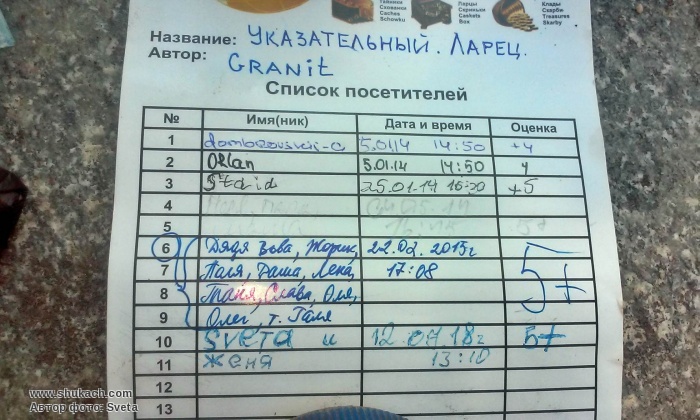 Тайники
Схованки
Caches
Schowku
Ларцы
Скриньки
Caskets
Box
Клады
Скарби
Treasures
Skarby
Название: УКАЗАТЕЛЬНЫЙ. ЛАРЕЦ.
Автор: GRANiT
Список посетителей
№ Имя(ник) Дата и время Оценка
1 dombrovskii-a 5.01.14 14:50 +4
2 Oklan 5.01.14 14:50 4
3 Staid 25.01.14 16:20 +5
4
5
6 Дядя Вова, Жорик, 22.02.2015г
7 Поля, Даша, Лена, 17:08 5+
8 Таня, Слава, Оля,
9 Олег, т. Галя
10 Sveta и 12.07.18г 5+
11 Женя 13:10
12
13
www.shukach.com
Автор фото: Sveta